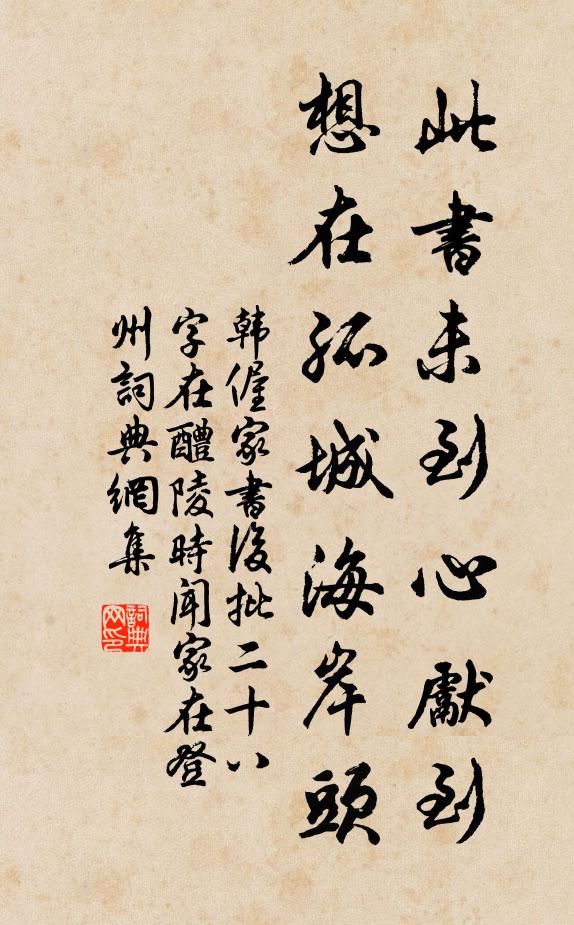 此書未到心獻到
想在孤城海岸頭
韩偓家書後批二十八
字在醴陵時聞家在登
州詞典網集
詞典网印